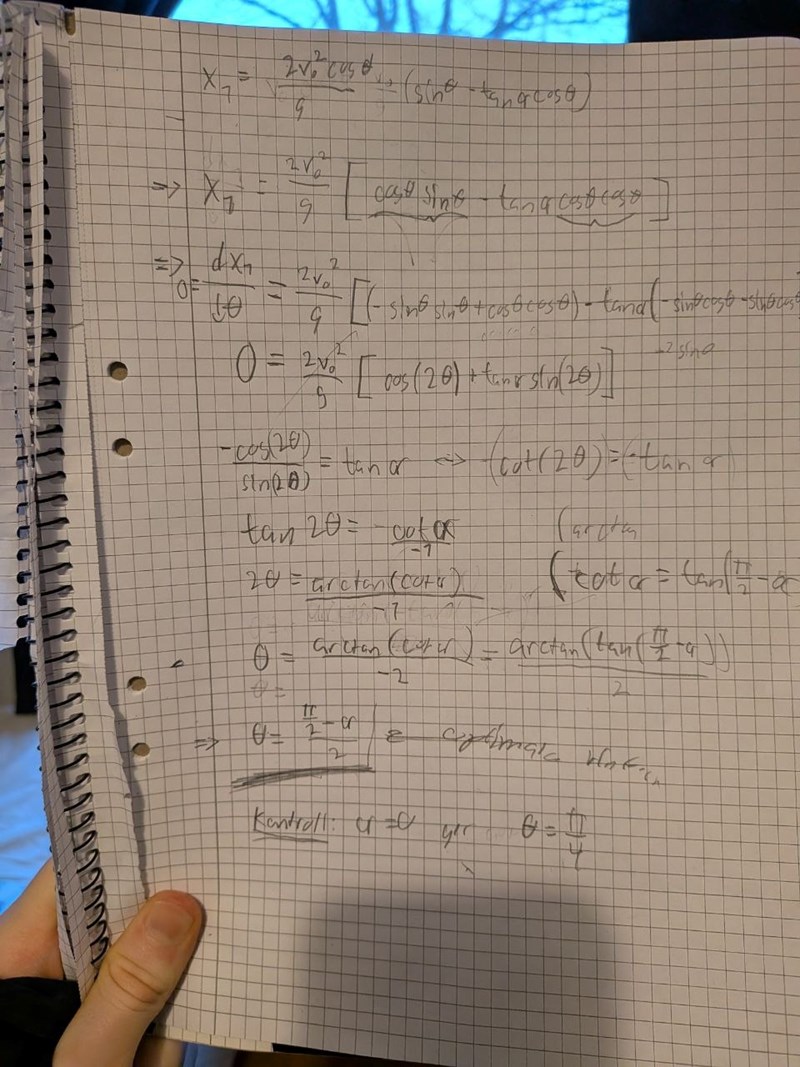 x₁ = 2v₀² cosθ / g (sinθ - tanα cosθ)
=> x₁ = 2v₀² / g [cosθ sinθ - tanα cosθ cosθ]
=> 0 = dx₁/dθ = 2v₀² / g [(-sinθ sinθ + cosθ cosθ) - tanα(-sinθ cosθ - sinθ cosθ
-2 sinθ
0 = 2v₀² / g [cos(2θ) + tanα sin(2θ)]
-cos(2θ) / sin(2θ) = tan α <=> (cot(2θ)) = (-tan α
tan 2θ = cot α / -1 (arctan
2θ = arctan(cot α) / -1 (cot α = tan(π/2 - α
θ = arctan(cot α) / -2 = arctan(tan(π/2 - α)) / 2
θ =
=> θ = (π/2 - α) / 2
Kontroll: α = 0 ger θ = π/4